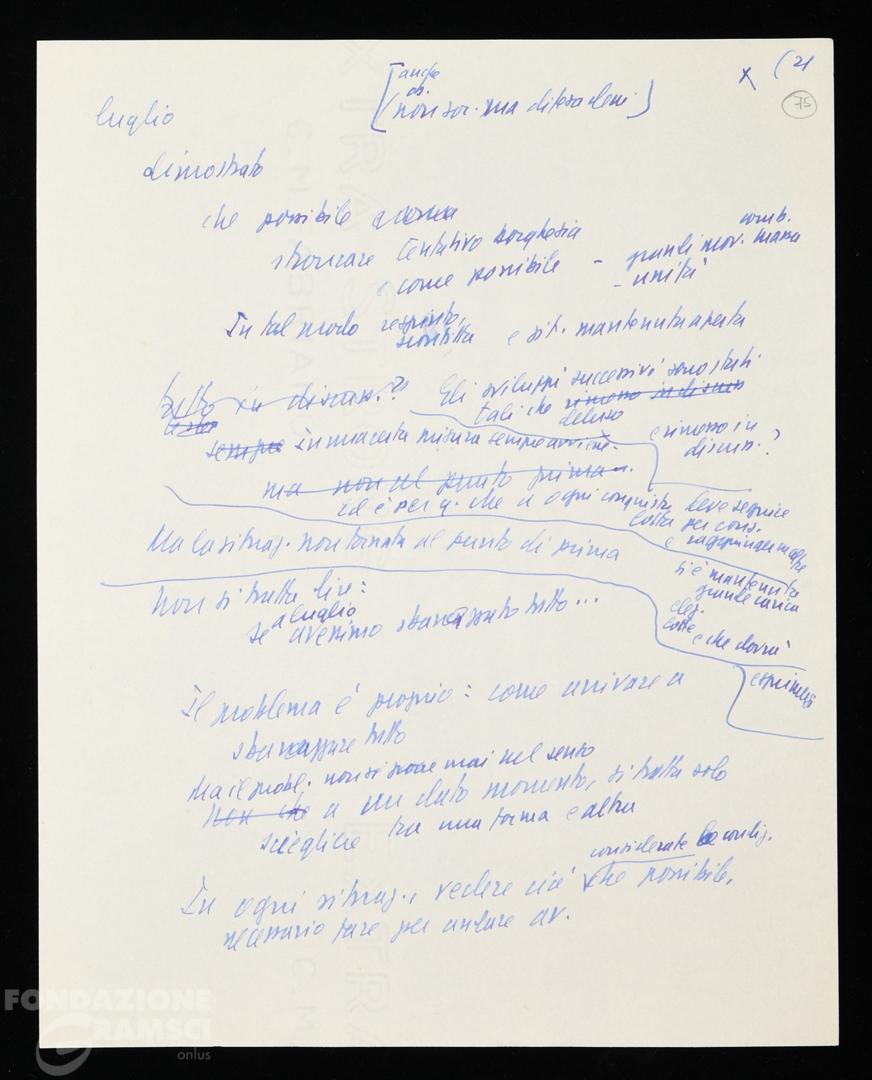 x (21
75
[anche
os.
non soc. ma difesa dem.]
luglio
dimostrato
che possibile e doveva
stroncare tentativo borghesia
e come possibile - grandi mov. massa
comb.
- unità
In tal modo respinto,
sconfitta e sit. mantenuta aperta
tutto in discuss.?
Gli sviluppi successivi sono stati
tali che rimesso in discuss
deluso
e rimesso in
discuss.?
sempre In una certa misura sempre avviene.
ma non al punto prima
ed è per q. che a ogni conquista deve seguire
lotta per cons.
e raggiungere altre
Ma la situaz. non tornata al punto di prima
si è mantenuta
grande carica
Non si tratta dire:
a luglio
se avessimo spazzato tutto...
elez.
lotte e che dovrà
esprimersi
Il problema è proprio: come arrivare a
spazzare tutto
Ma il probl. non si pone mai nel senso
Non che a un dato momento, si tratta solo
scegliere tra una forma e altra
considerate le condiz.
In ogni situaz., vedere ciò che possibile,
necessario fare per andare av.
FONDAZIONE
GRAMSCI
onlus